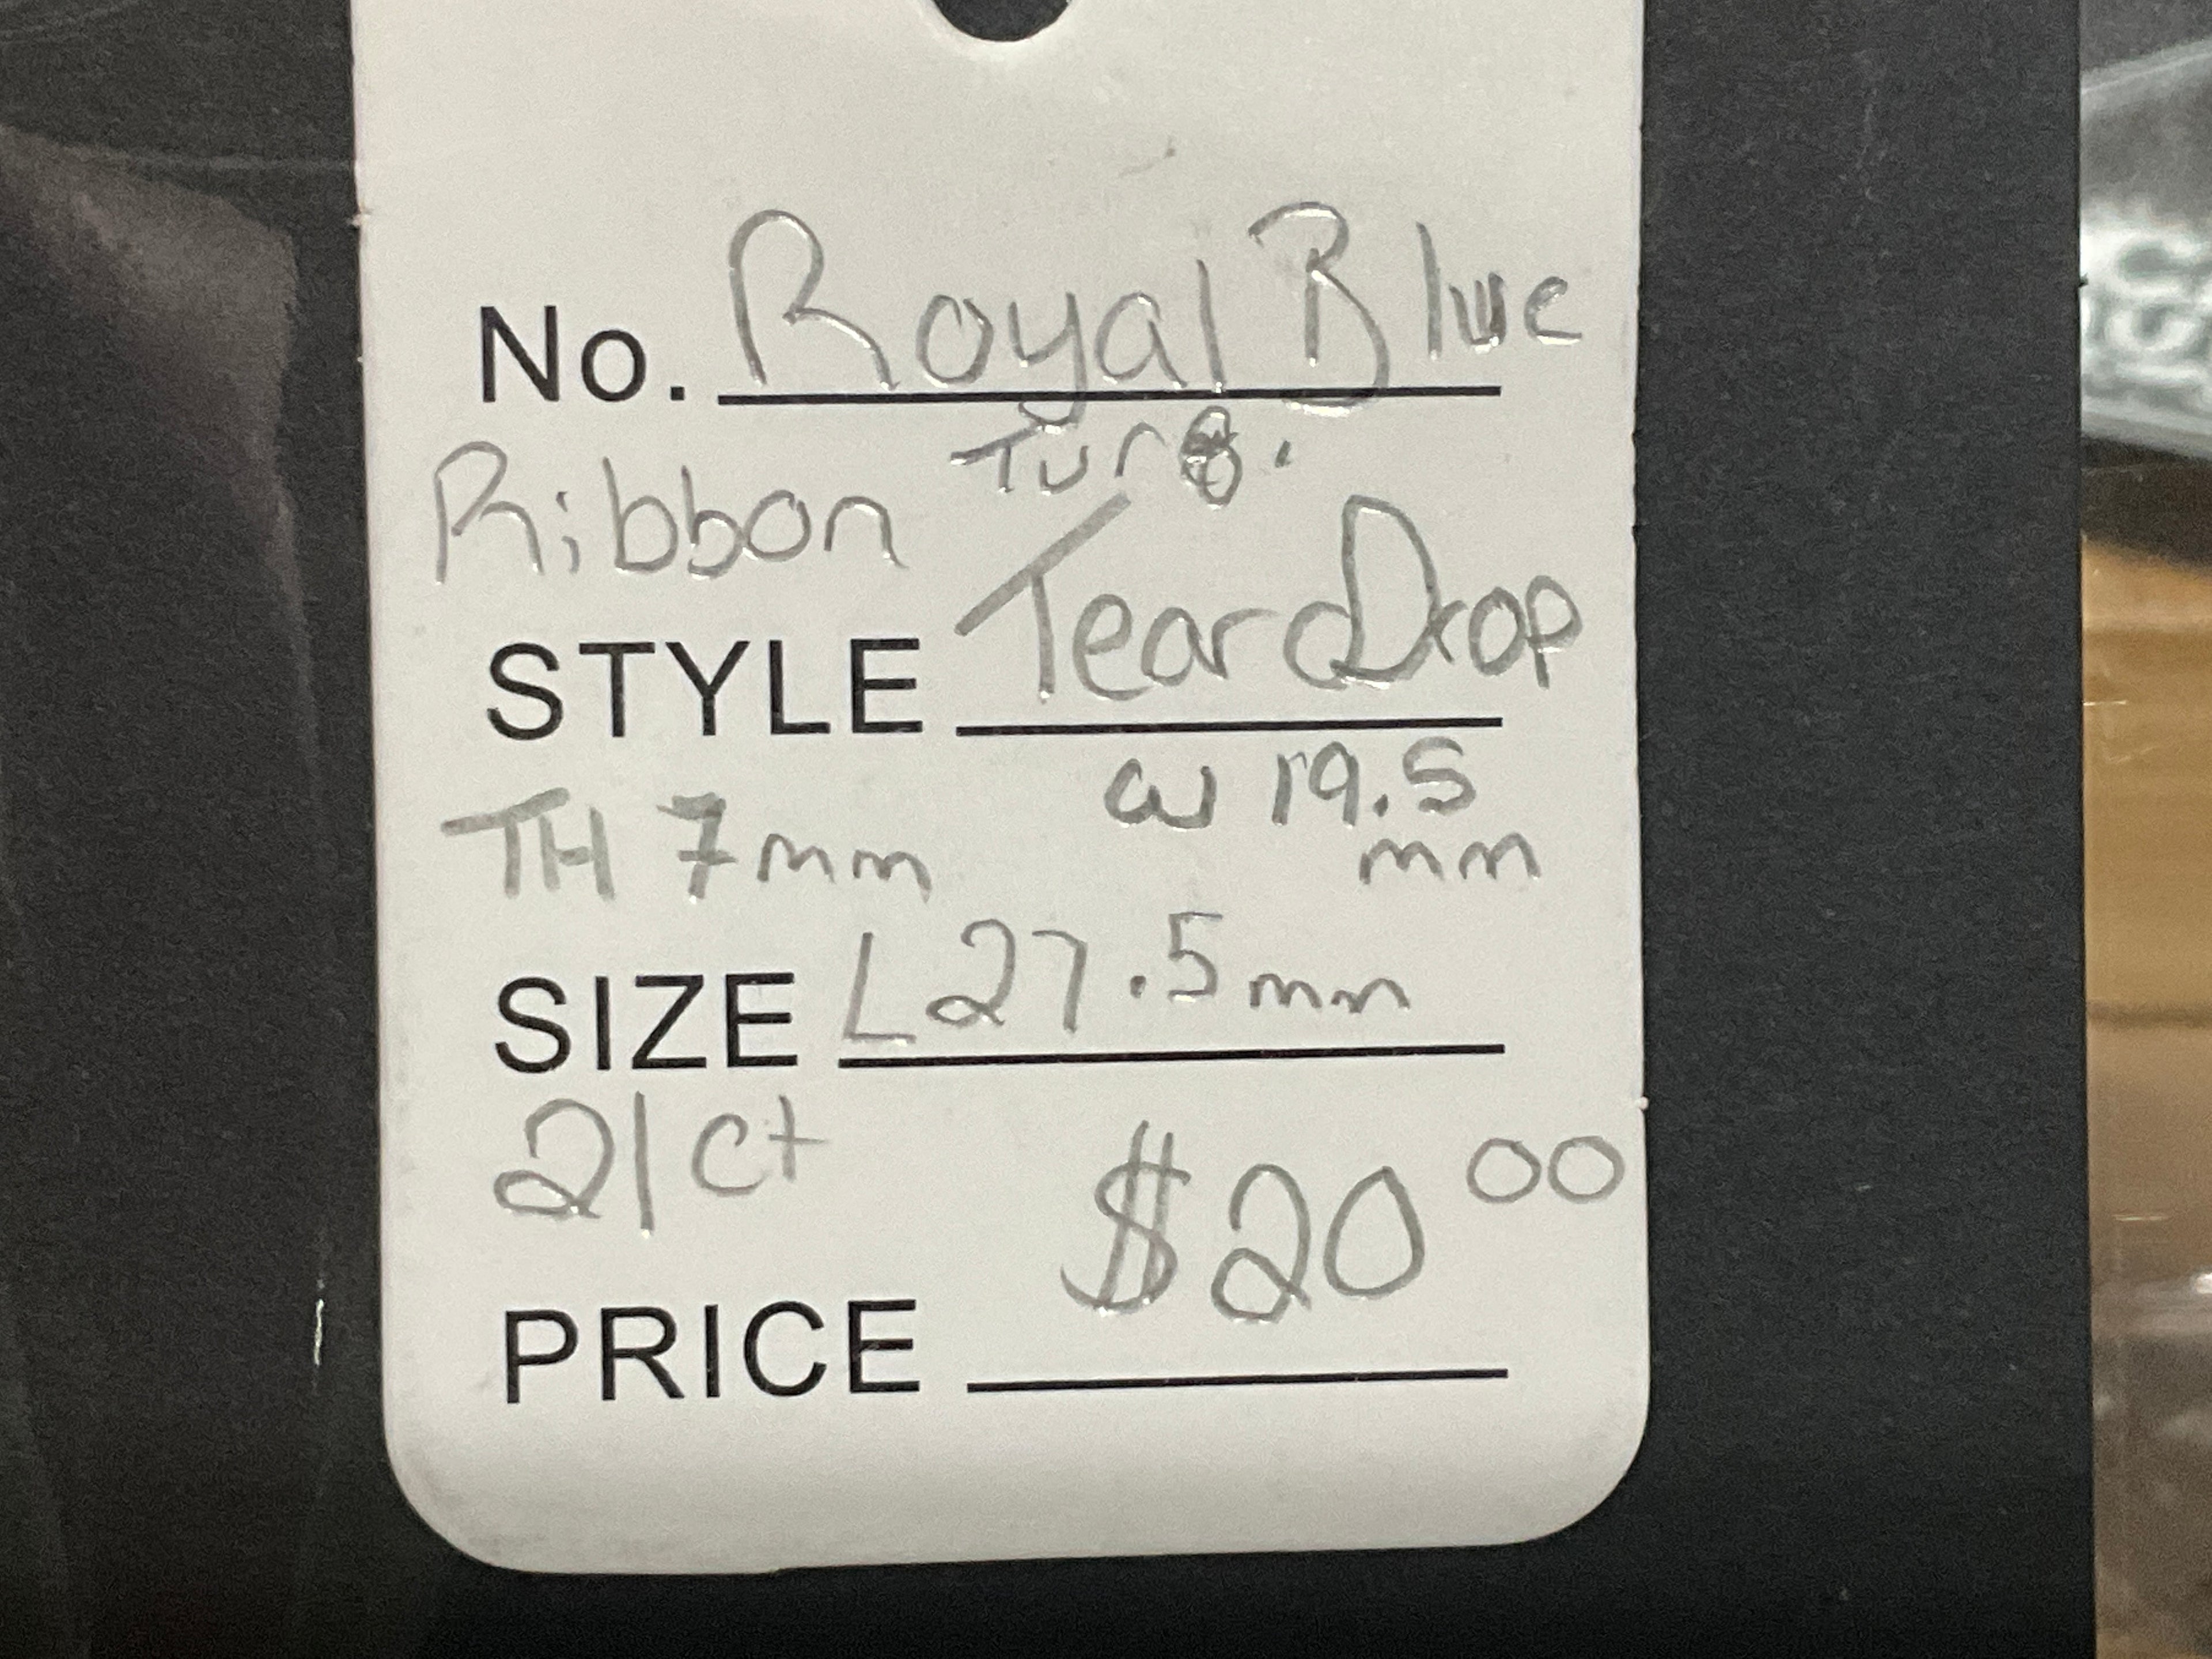 No. Royal Blue
Ribbon Turq.
STYLE TearDrop
TH 7mm W 19.5
mm
SIZE L27.5mm
21ct
$20 00
PRICE